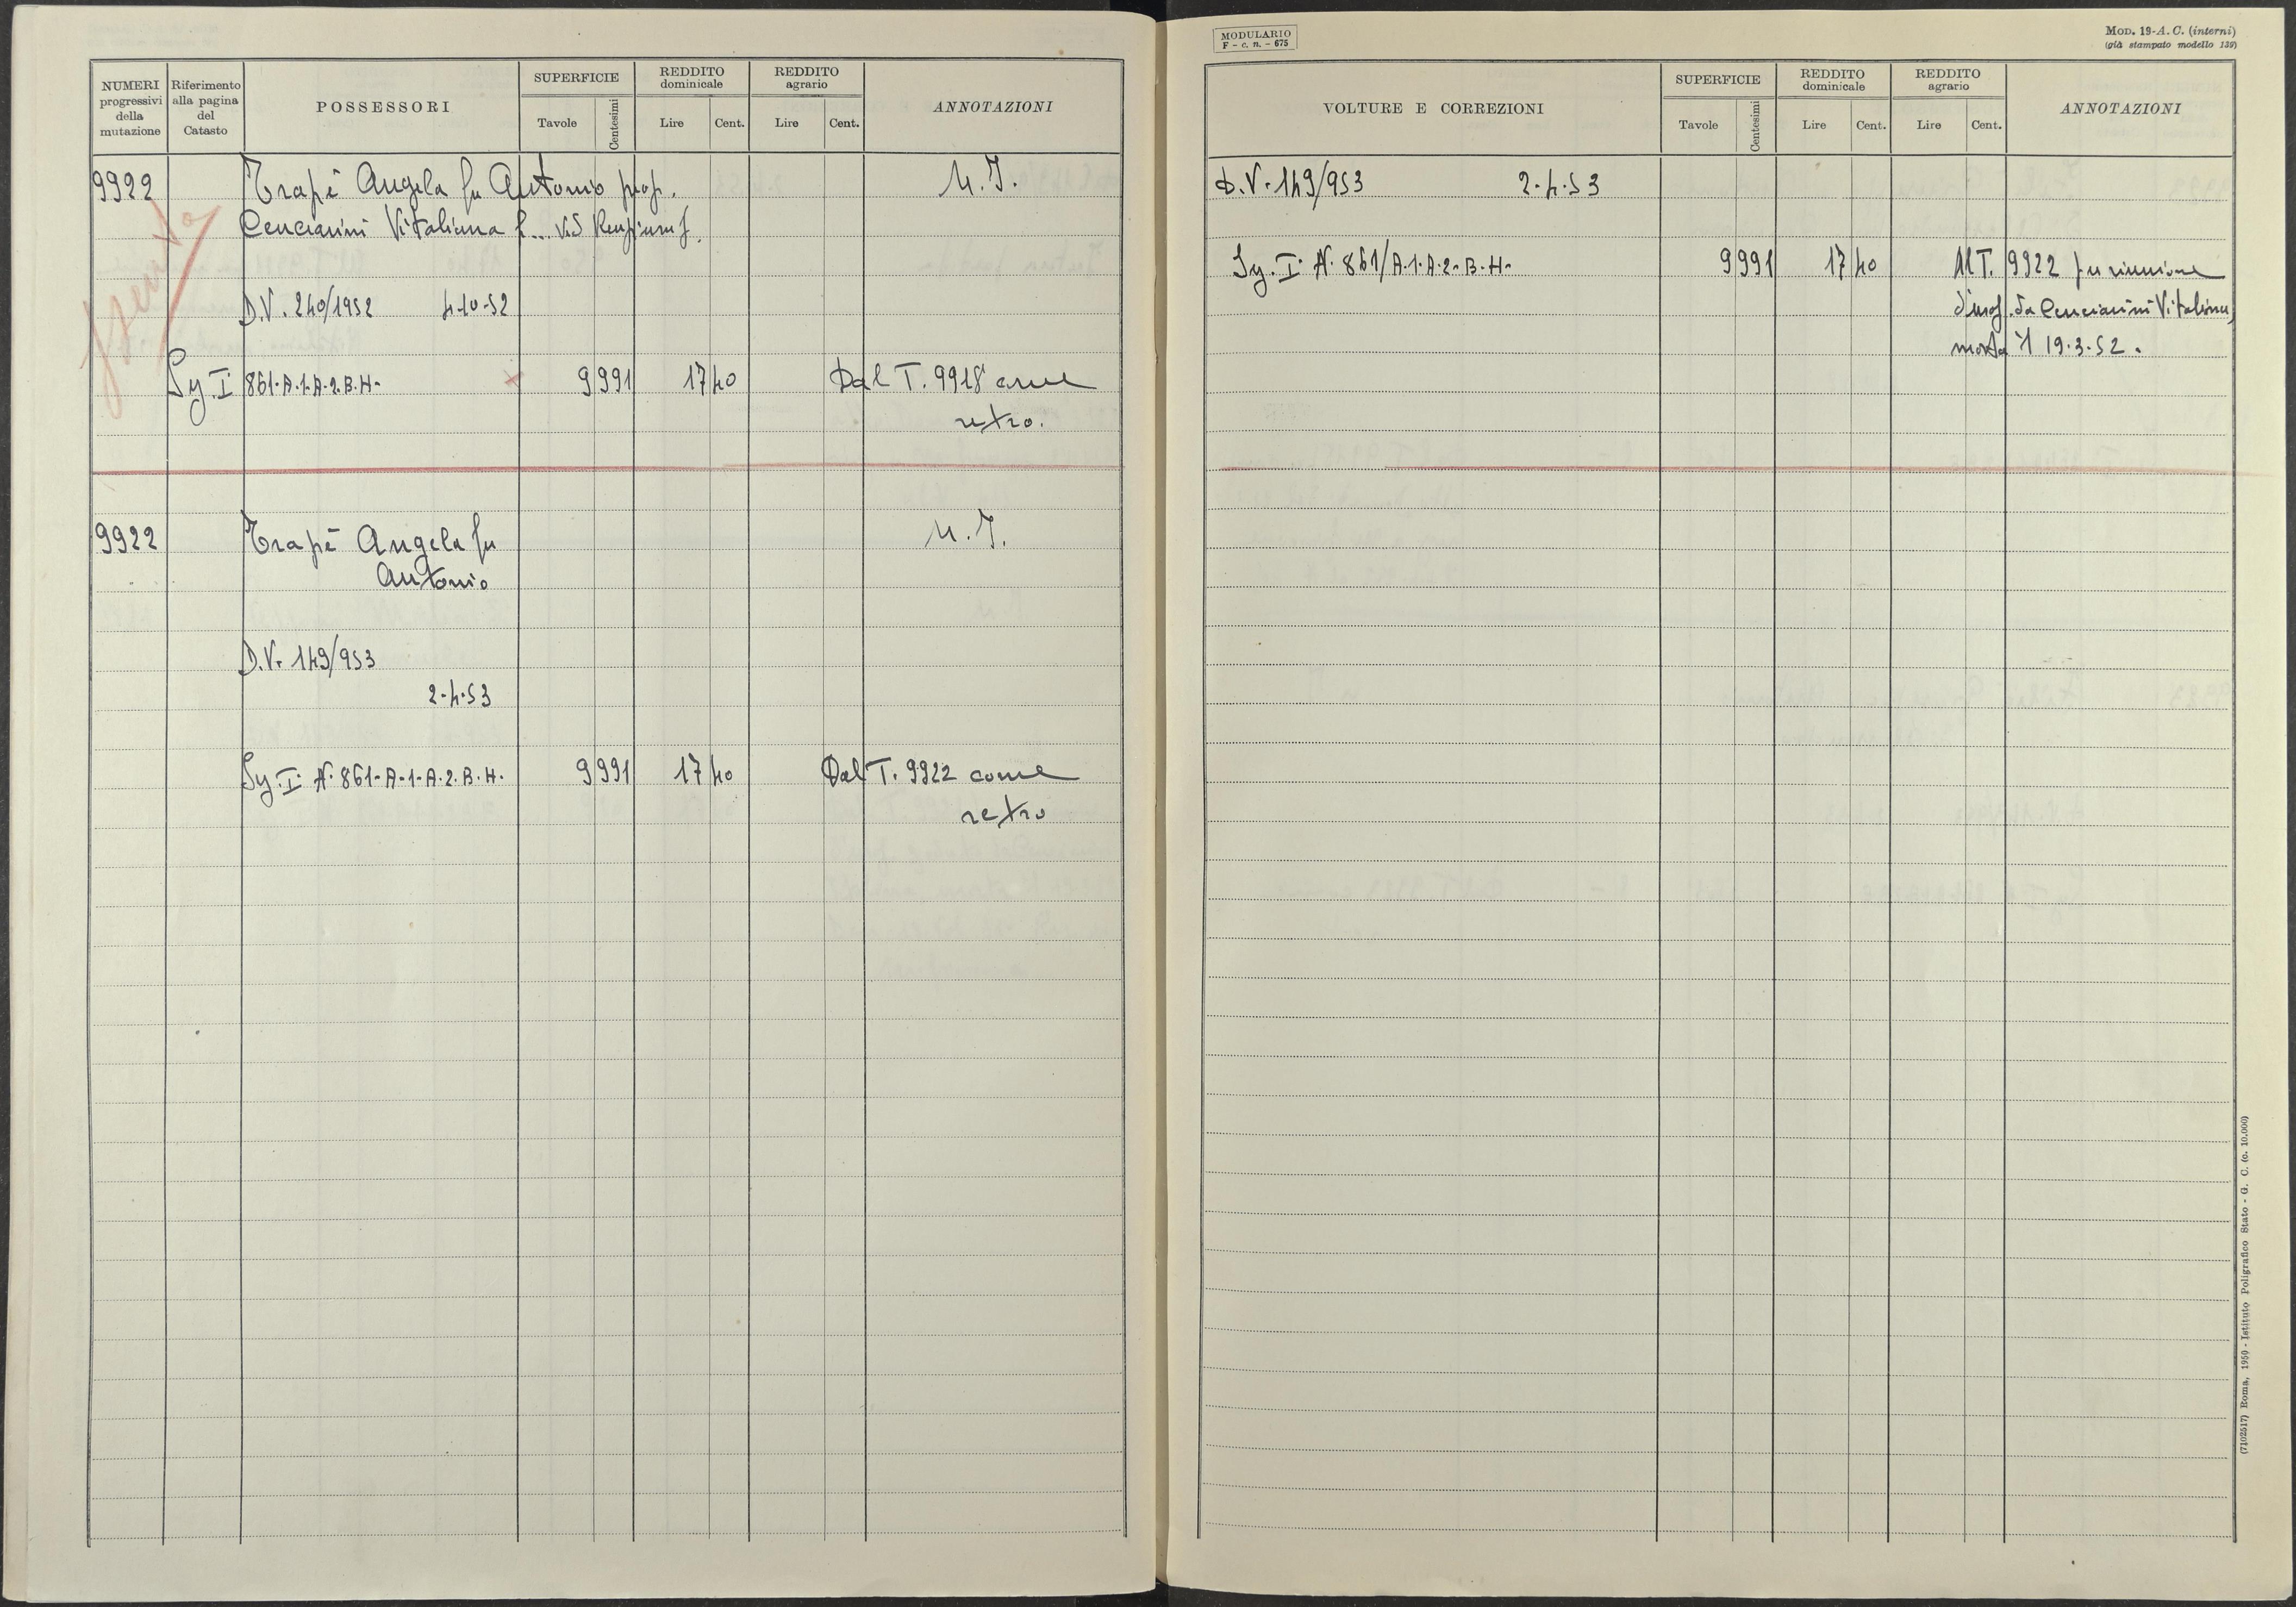 NUMERI
progressivi
della
mutazione
Riferimento
alla pagina
del
Catasto
POSSESSORI
SUPERFICIE
Tavole
Centesimi
REDDITO
dominicale
Lire
Cent.
REDDITO
agrario
Lire
Cent.
ANNOTAZIONI
9922
Trapè Angela fu Antonio prop.
U. I.
Cenciarini Vitaliana
Spento
D.V. 240/1952 4-10-52
Sy. I 861-A-1-A-2-B-H- x 9991 17 40 Dal T. 9918 come
retro.
9922
Trapè Angela fu
U. I.
Antonio
D.V. 149/953
2-4-53
Sy. I N. 861-A-1-A-2-B-H. 9991 17 40 Dal T. 9922 come
retro
MODULARIO
F - c. n. - 675
MOD. 19-A. C. (interni)
(già stampato modello 139)
VOLTURE E CORREZIONI
SUPERFICIE
Tavole
Centesimi
REDDITO
dominicale
Lire
Cent.
REDDITO
agrario
Lire
Cent.
ANNOTAZIONI
D.V. 149/953 2-4-53
Sy. I N. 861/A-1-A-2-B-H- 9991 17 40 Al T. 9922 per riunione
d'usuf. da Cenciarini Vitaliana
morta il 19-3-52.
(7102517) Roma, 1950 - Istituto Poligrafico Stato - G. C. (c. 10.000)